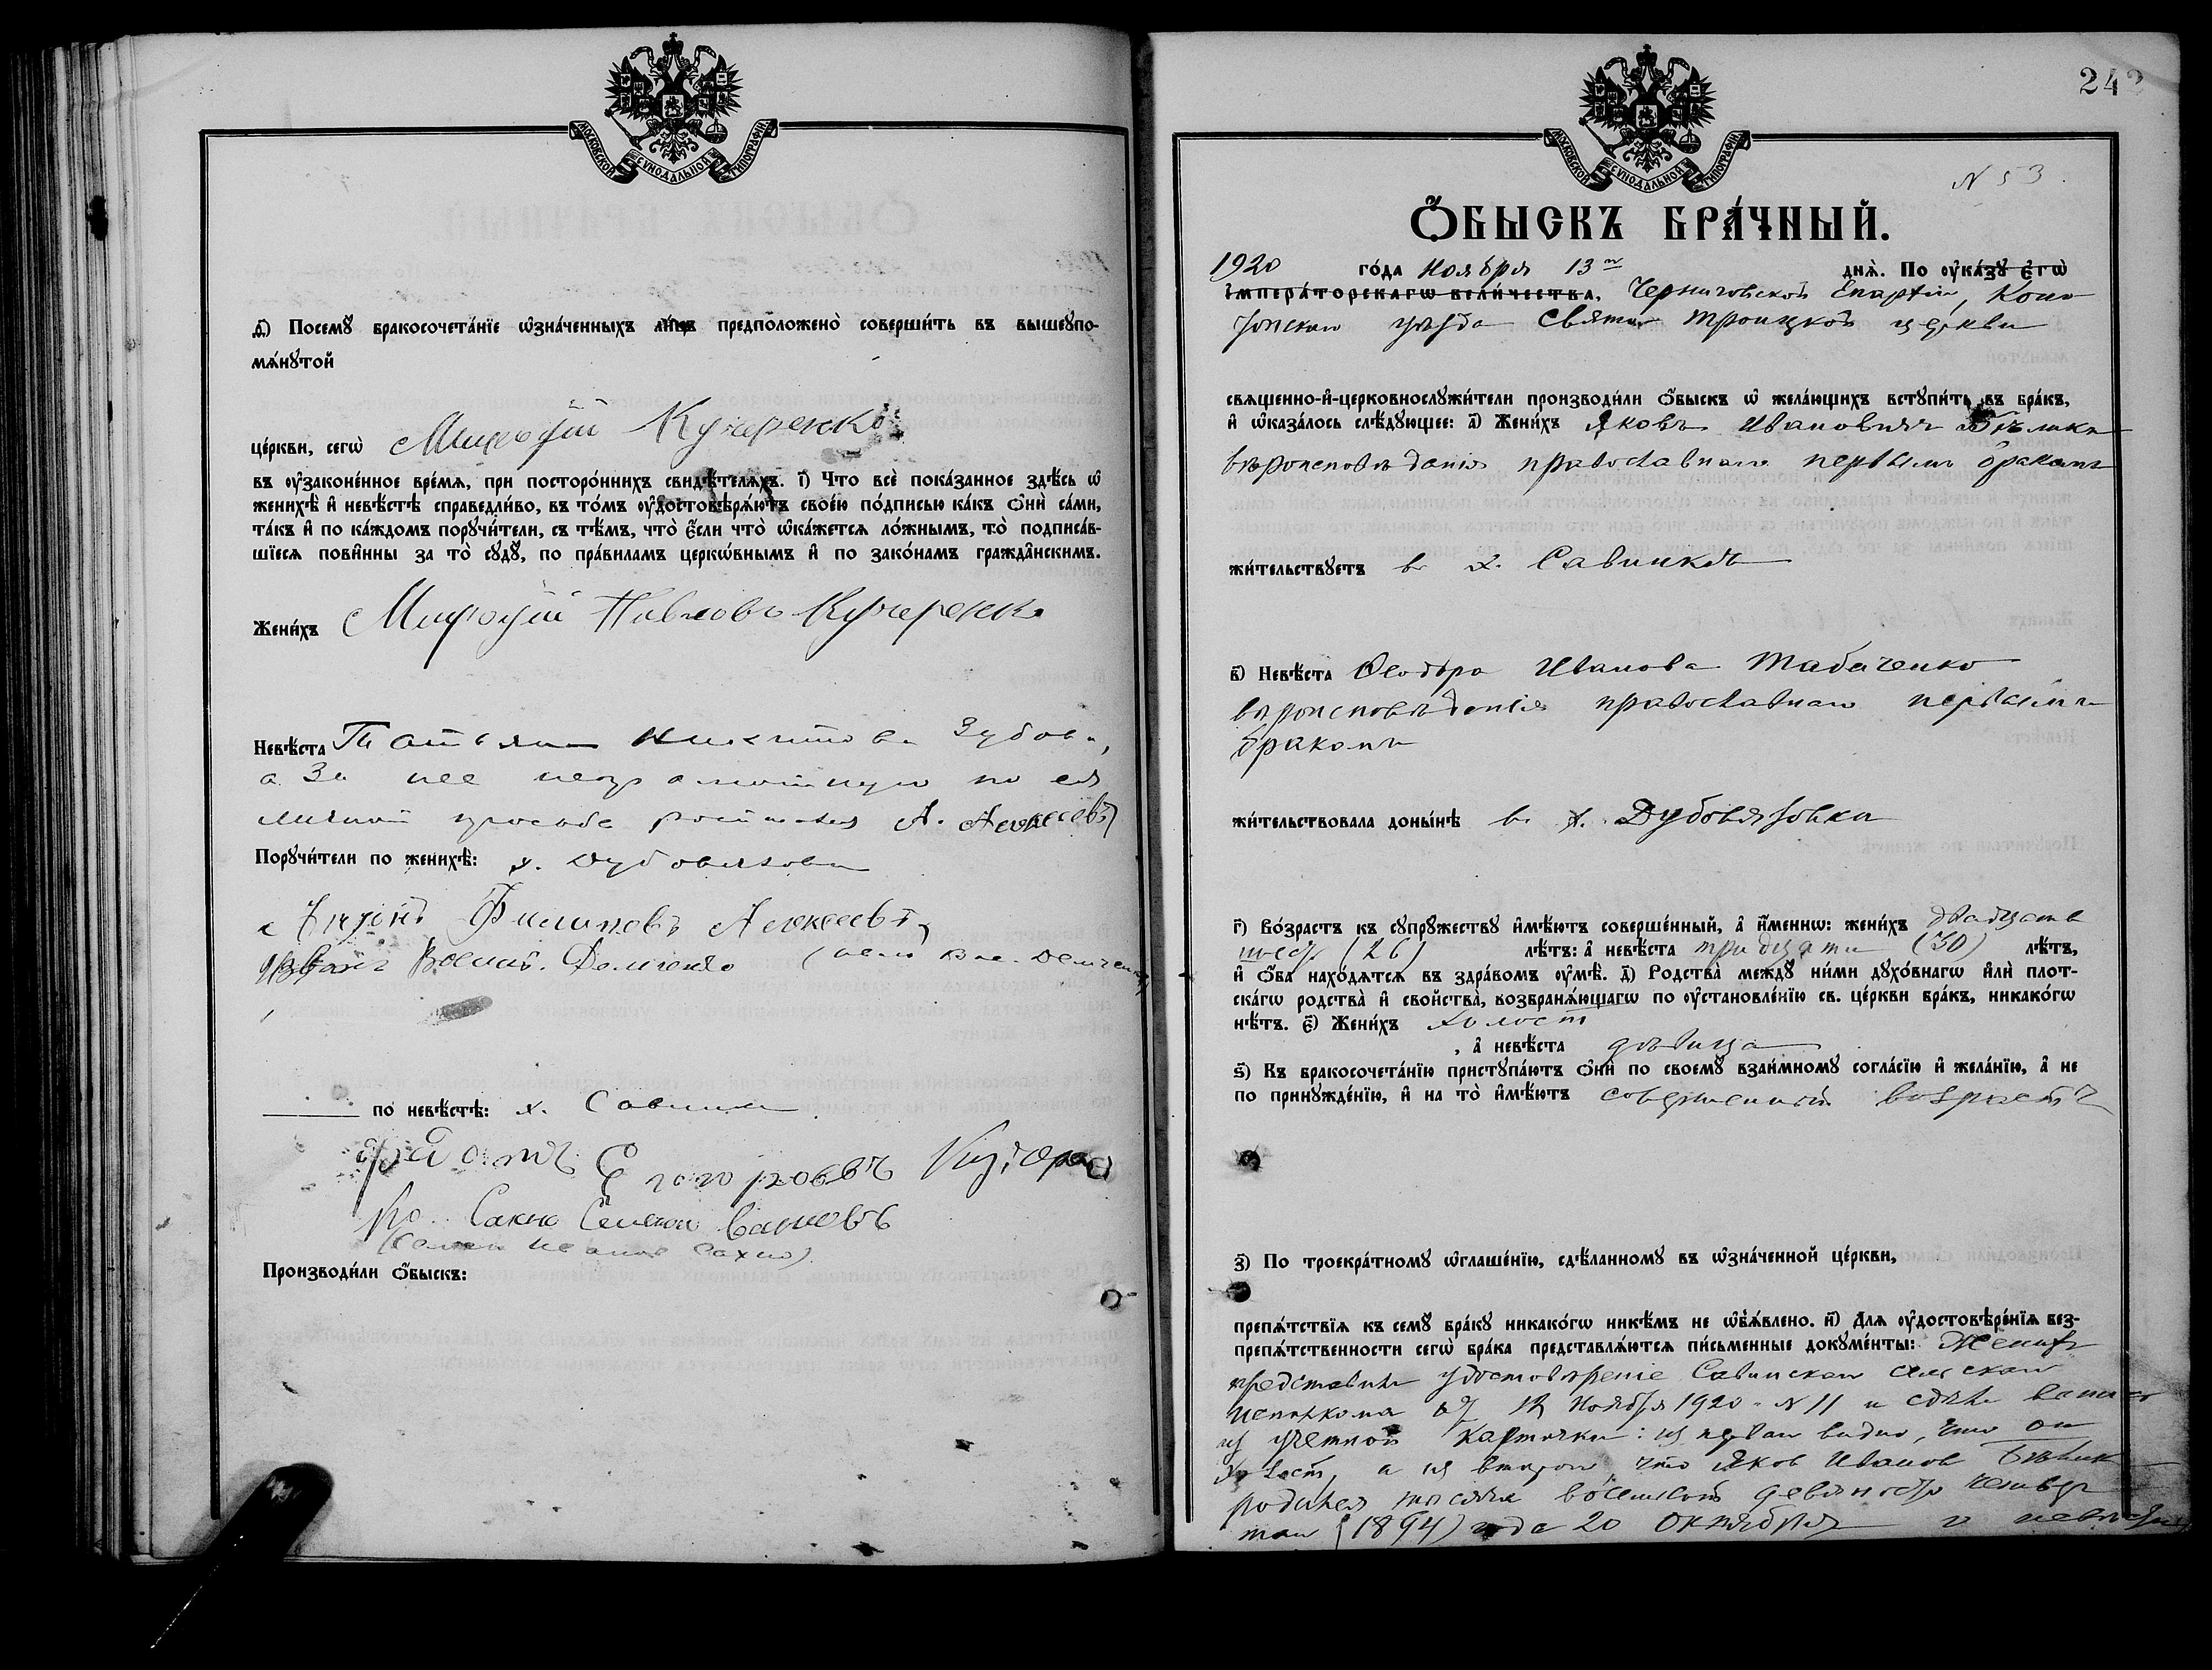 МОСКОВСКОЙ СѴНОДАЛЬНОЙ ТИПОГРАФІИ
д҃і) Посемꙋ бракосочета́нїе ѡ҆зна́ченныхъ ли́цъ предположено̀ соверши́ть въ вышеꙋпо-
мѧ́нꙋтой
це́ркви, сегѡ̀ Мифодїй Кучеренко
въ ᲂу҆зако́ненное вре́мѧ, при посторо́ннихъ свидѣ́телѧхъ. і҃) Что всѐ пока́занное здѣ́сь ѡ҆
женихѣ̀ и҆ невѣ́стѣ справедли́во, въ то́мъ ᲂу҆достовѣрѧ́ютъ свое́ю по́дписью ка́къ ѻ҆нѝ са́ми,
та́къ и҆ по ка́ждомъ порꙋчи́тели, съ тѣ́мъ, что̀ е҆́сли что̀ ѡ҆ка́жетсѧ ло́жнымъ, то̀ подписа́в-
шїесѧ пови́нны за то̀ сꙋдꙋ̀, по пра́виламъ церкѡ́внымъ и҆ по зако́намъ гражда́нскимъ.
Жени́хъ Мифодїй Павловъ Кучеренко
Невѣ́ста Татьяна Никитова Зубова,
а за нее неграмотную по ея
личной просьбе А. Алексеевъ
Порꙋчи́тели по женихѣ̀: х. Дубовязовки
Филиповъ Алексеевъ
Демченко
по невѣ́стѣ: х. Савинки
Сахно Семен Івановъ
(Семен Иванов Сахно)
Производи́ли ѻ҆́быскъ:
242
МОСКОВСКОЙ СѴНОДАЛЬНОЙ ТИПОГРАФІИ
N 53
Ѻ҆БЫСКЪ БРА́ЧНЫЙ.
1920 го́да Ноября 13 го днѧ̀. По ᲂу҆ка́зꙋ є҆гѡ̀
і҆мпера́торскагѡ вели́чества, Черниговской Епархіи, Коно
топскаго уѣзда Свято Троицкой церкви
свѧще́нно-и҆-церковнослꙋжи́тели производи́ли ѻ҆́быскъ ѡ҆ жела́ющихъ встꙋпи́ть въ бра́къ,
и҆ ѡ҆каза́лось слѣ́дꙋющее: а҃) Жени́хъ Яковъ Ивановичъ Бѣлика
вѣроисповѣданія православнаго первымъ бракомъ
жи́тельствꙋетъ в х. Савинкѣ
в҃) Невѣ́ста Ѳеодора Иванова Табаченко
вѣроисповѣданія православнаго первымъ
бракомъ
жи́тельствовала доны́нѣ в х. Дубовязовки
г҃) Во́зрастъ къ сꙋпрꙋ́жествꙋ и҆мѣ́ютъ соверше́нный, а҆ и҆́меннѡ: жени́хъ двадцать
шесть (26) лѣ́тъ: а҆ невѣ́ста тридцати (30) лѣ́тъ,
и҆ ѻ҆́ба нахо́дѧтсѧ въ здра́вомъ ᲂу҆мѣ̀. д҃) Родства̀ междꙋ̀ ни́ми дꙋхо́внагѡ и҆лѝ плот-
ска́гѡ родства̀ и҆ свойства̀, возбранѧ́ющагѡ по ᲂу҆становле́нїю св. це́ркви бра́къ, никако́гѡ
нѣ́тъ. є҃) Жени́хъ холост
, а҆ невѣ́ста дѣвица
ѕ҃) Къ бракосочета́нїю пристꙋпа́ютъ ѻ҆нѝ по своемꙋ̀ взаи́мномꙋ согла́сїю и҆ жела́нїю, а҆ не
по принꙋжде́нїю, и҆ на то̀ и҆мѣ́ютъ совершенный возрастъ
з҃) По троекра́тномꙋ ѡ҆глаше́нїю, сдѣ́ланномꙋ въ ѡ҆зна́ченной це́ркви,
препѧ́тствїѧ къ семꙋ̀ бра́кꙋ никако́гѡ никѣ́мъ не ѡ҆б̾ѧ́влено. и҃) Длѧ ᲂу҆достовѣре́нїѧ без-
препѧ́тственности сегѡ̀ бра́ка представлѧ́ютсѧ пи́сьменные докꙋме́нты: Жених
представил удостовѣреніе Савинскаго сельскаго
исполкома от 12 Ноября 1920 N 11 и
из учетной карточки: из перваго видно, что он
холост, а из второго, что Яков Иванов Бѣлик
родился тысяча восемьсот девяносто четвер
таго (1894) года 20 Октября и невѣста